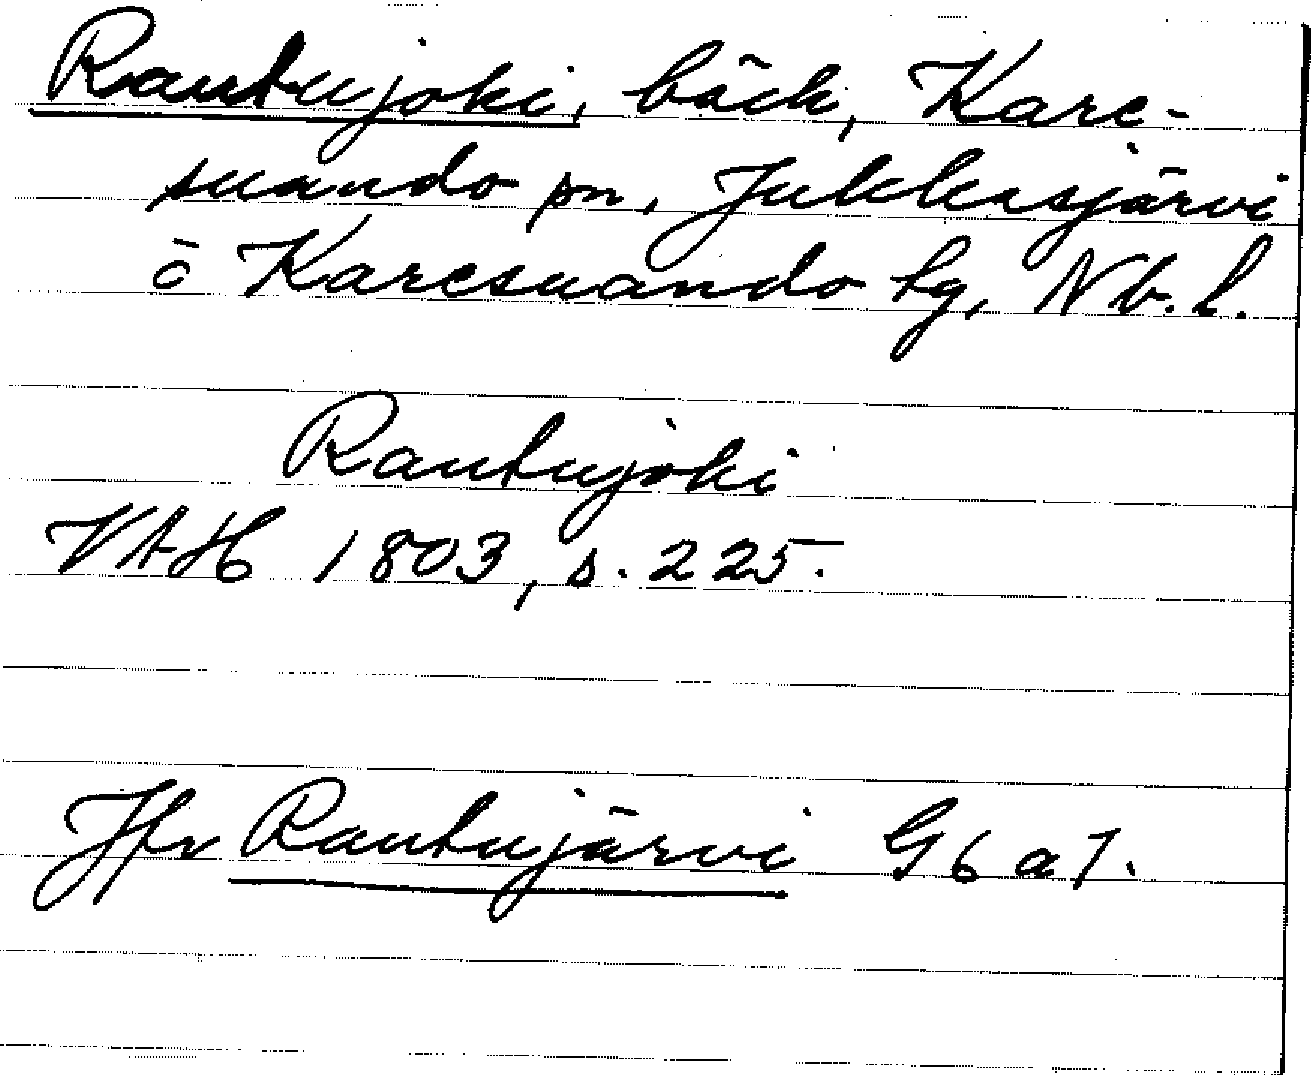 Rautujoki, bäck, Kare-
suando sn, Jukkasjärvi
o Karesuando lg, Nb. l.
Rautujoki
VAH 1803, s. 225.
Jfr Rautujärvi G6a7.